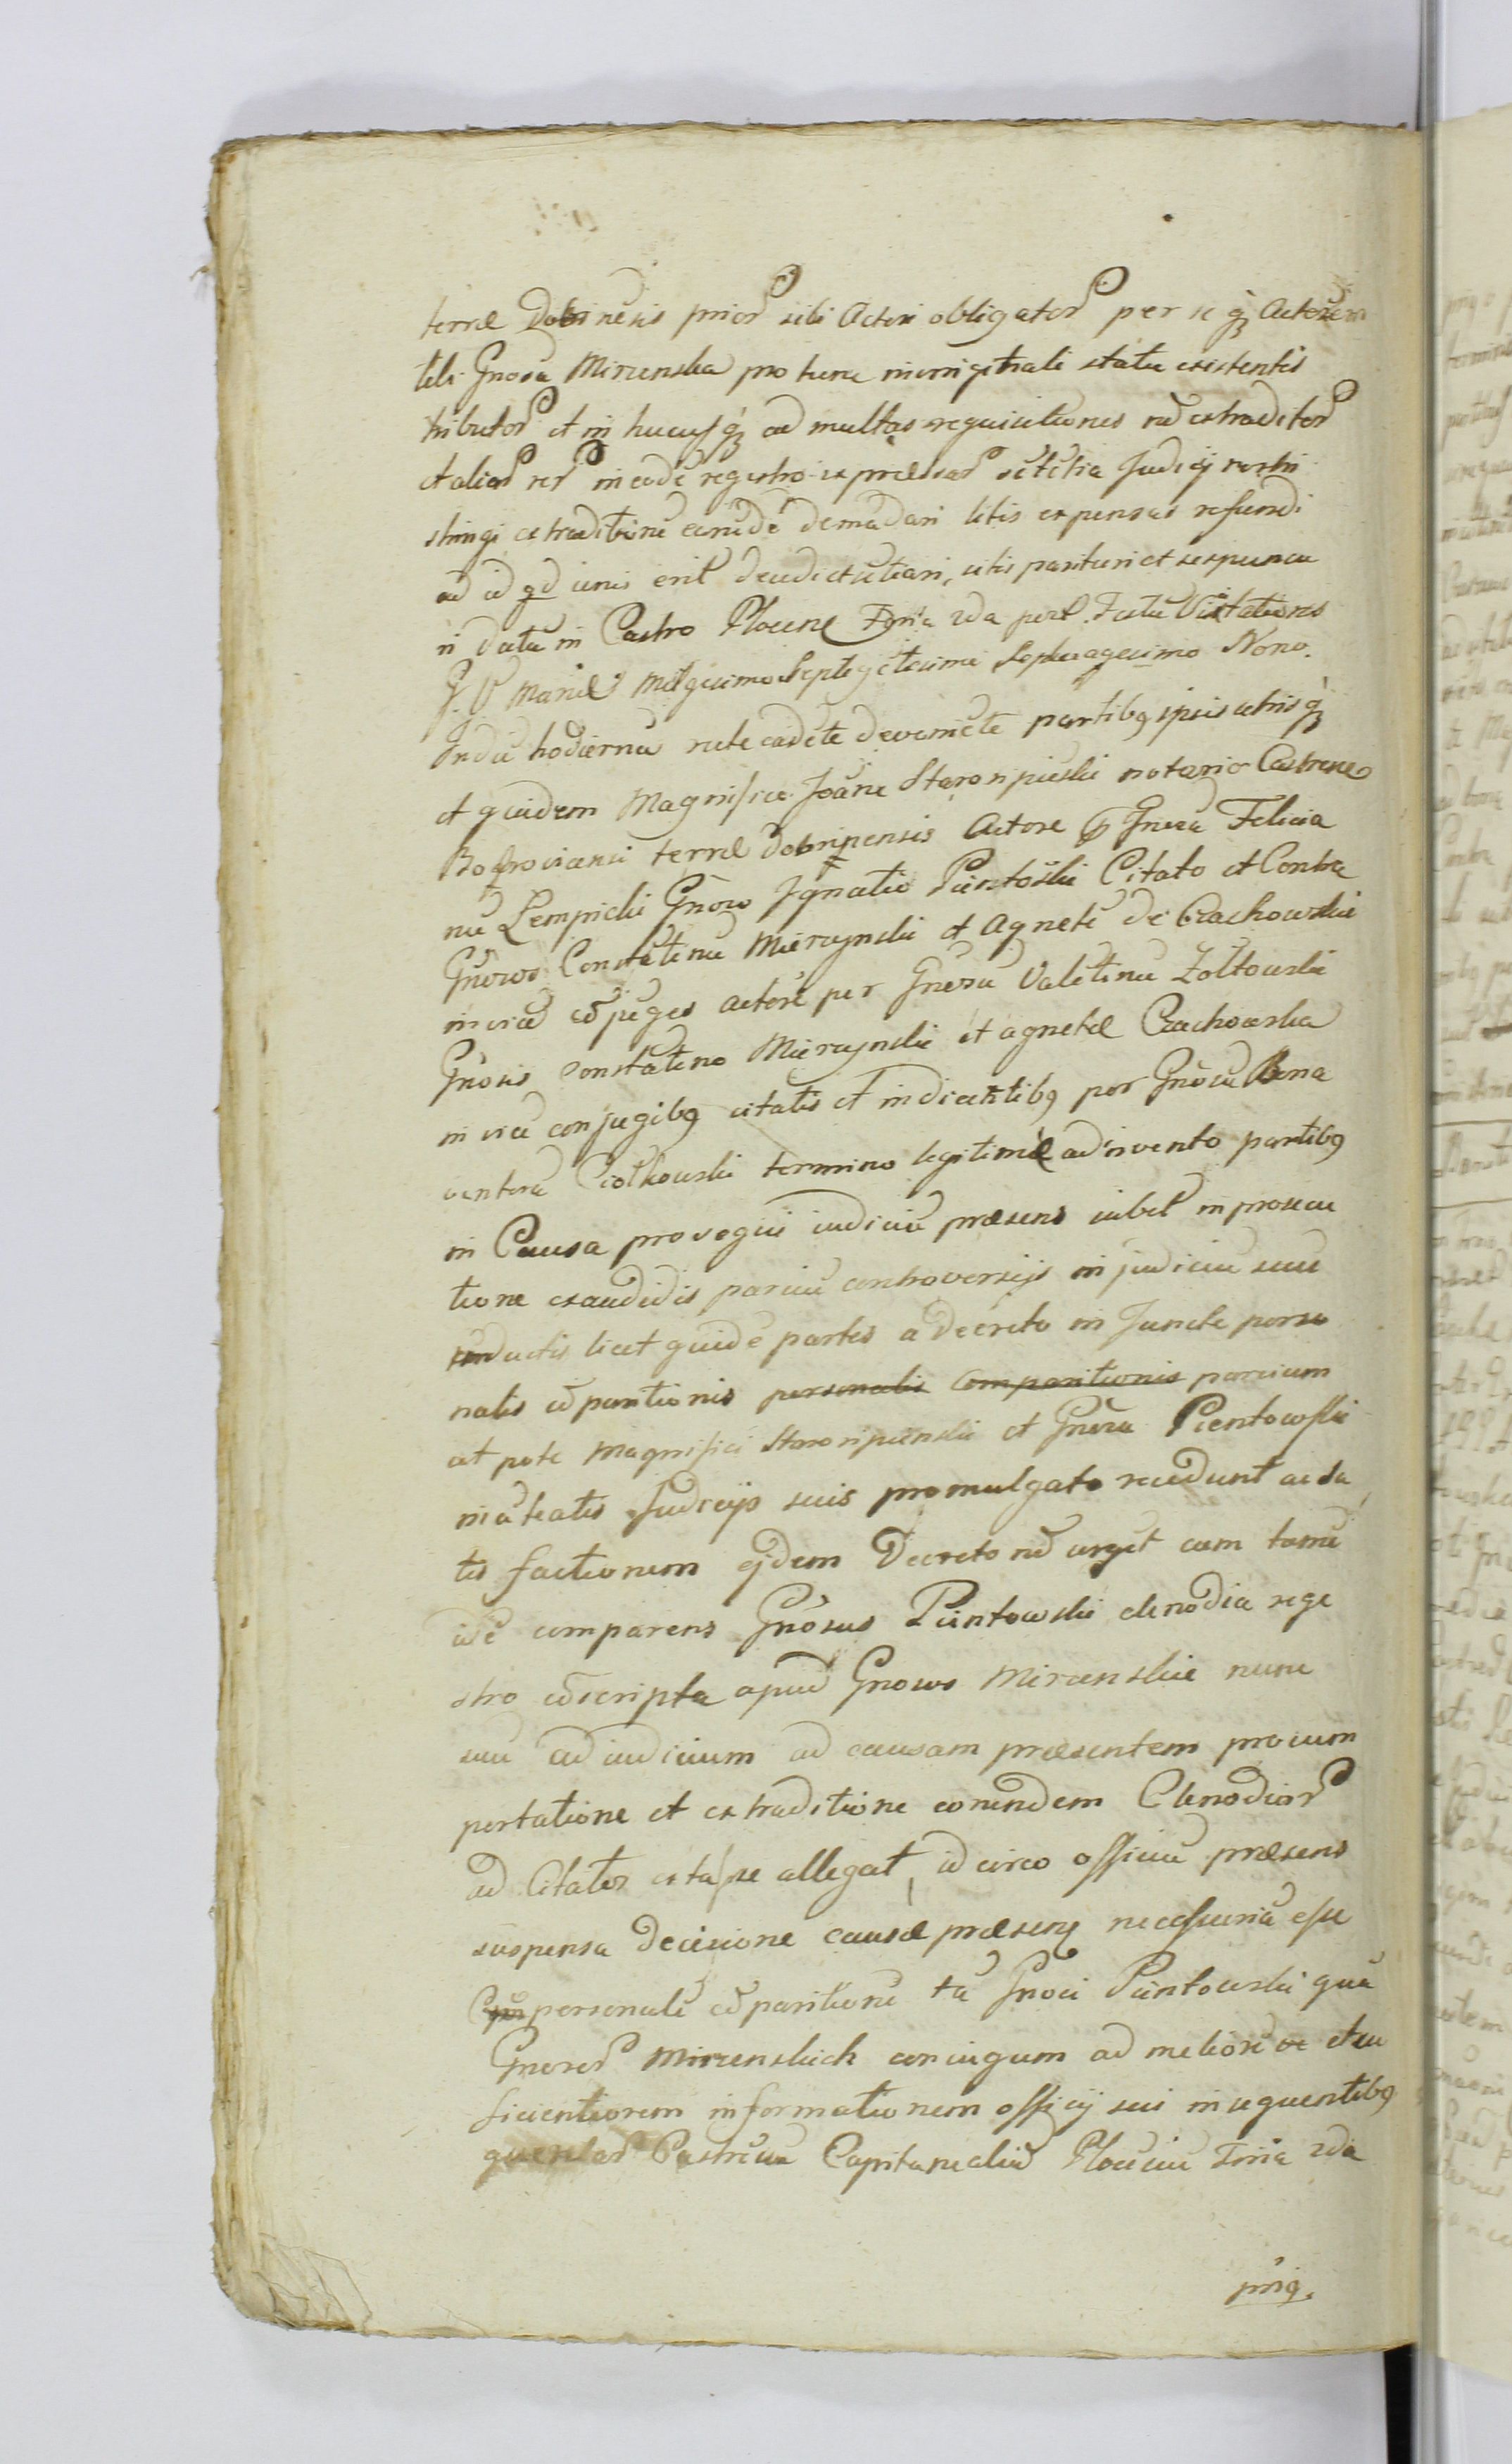 terræ Dobrinēsis prior sibi Actori obligator per se q3 Actorem
tibi Gnosa Mirzenska pro tunc in conjugali statu existentis
tributor et in hucusq3 ad multas requisitiones nō extraditor
et aliar rer in eodē regestro expræssar sētētia Judicij nostri
stringi extraditionē earūdē demādari litis expensas refundi
ad id qd iuris erit decidi et sētiari, sitis parituri et responsu
ri datū in Castro Plocen Feria 2da post Festū Visitationis
B. V. Mariæ Millgesimo Septigētesimo Septuagesimo Nono.
In diē hodiernū recte cadēte deveniēte partibq ipsis utrisq3
et quidem Magnifico Joāne Staroripiński notario Castrense
Bobrovicensi terræ dobrinensis Actore per Gnosū Felicia
nū Lempicki Gnoso Jgnatio Pientoski Citato et Contra
Gnosos Constātinū Mierzynski et Agnetē de Czachowskie
invicē cōjuges actore per Gnosū Valētinū Zołtowski
Gnosis Constātino Mierzynski et agnetæ Czachowska
in vicē conjugibq citatis et indicātibq per Gnosū Bona
venturā Ciołkowski termino legitimè ad invento partibq
in Causa provequi iudiciū præsens iubet in prosecu
tione exaudidis parciū controversijs in judiciū suū
inductis licet quidē partes a decreto in Juncte perso
nalis cōparitionis personalis Comparitionis parcium
ut pote Magnifici Staroripienski et Gnosū Pientowski
Judicijs suis promulgato recedunt ac
tis factionem ejdem Decreto nō urget cum tamē
idē comparens Gnosus Pientowski clenodia rege
stro cōscripta apud Gnosos Mirzenskie nunc
suū ad iudicium ad causam præsentem pro
portatione et extraditione eorundem Clenodior
ad Citatos extare allegat, id circo officiū præsens
suspensa decisione causæ præsens necessariā esse
personalē cōparitionē tā Gnosi Pientowski quā
Gnosor Mirzenskich coniugum ad meliorē et su
ficientiorem informationem officij sui in sequentibq
querelar Castrēū Capitanealiū Plociēū Feria 2da